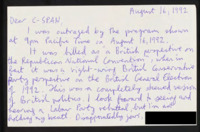 August 16, 1992
Dear C-SPAN,
I was outraged by the program shown
at 9pm Pacific Time on August 16, 1992.
It was billed as a British perspective on
the Republican National Convention, when in
fact it was a right-wing British Conservative
party perspective on the British General Election
of 1992. This was a completely skewed version
of British politics. I look forward to seeing and
hearing a Labour Party rebuttal, but I'm not
holding my breath. Disappointedly yours,